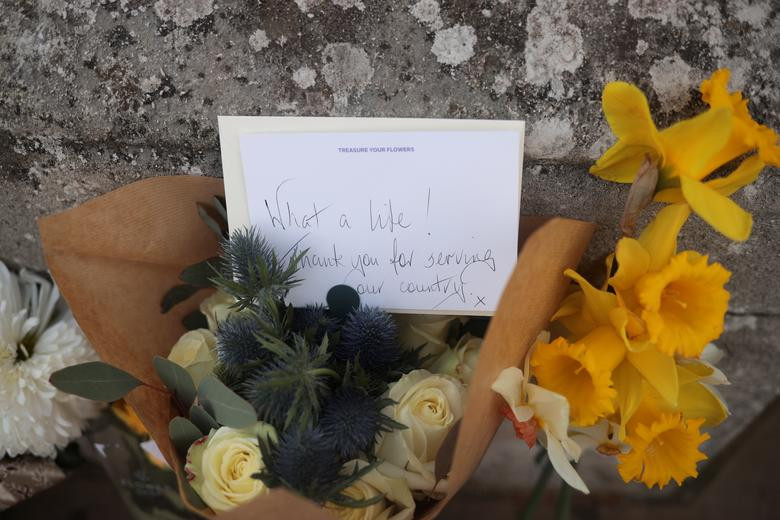 TREASURE YOUR FLOWERS
What a life!
Thank you for serving
our country. x